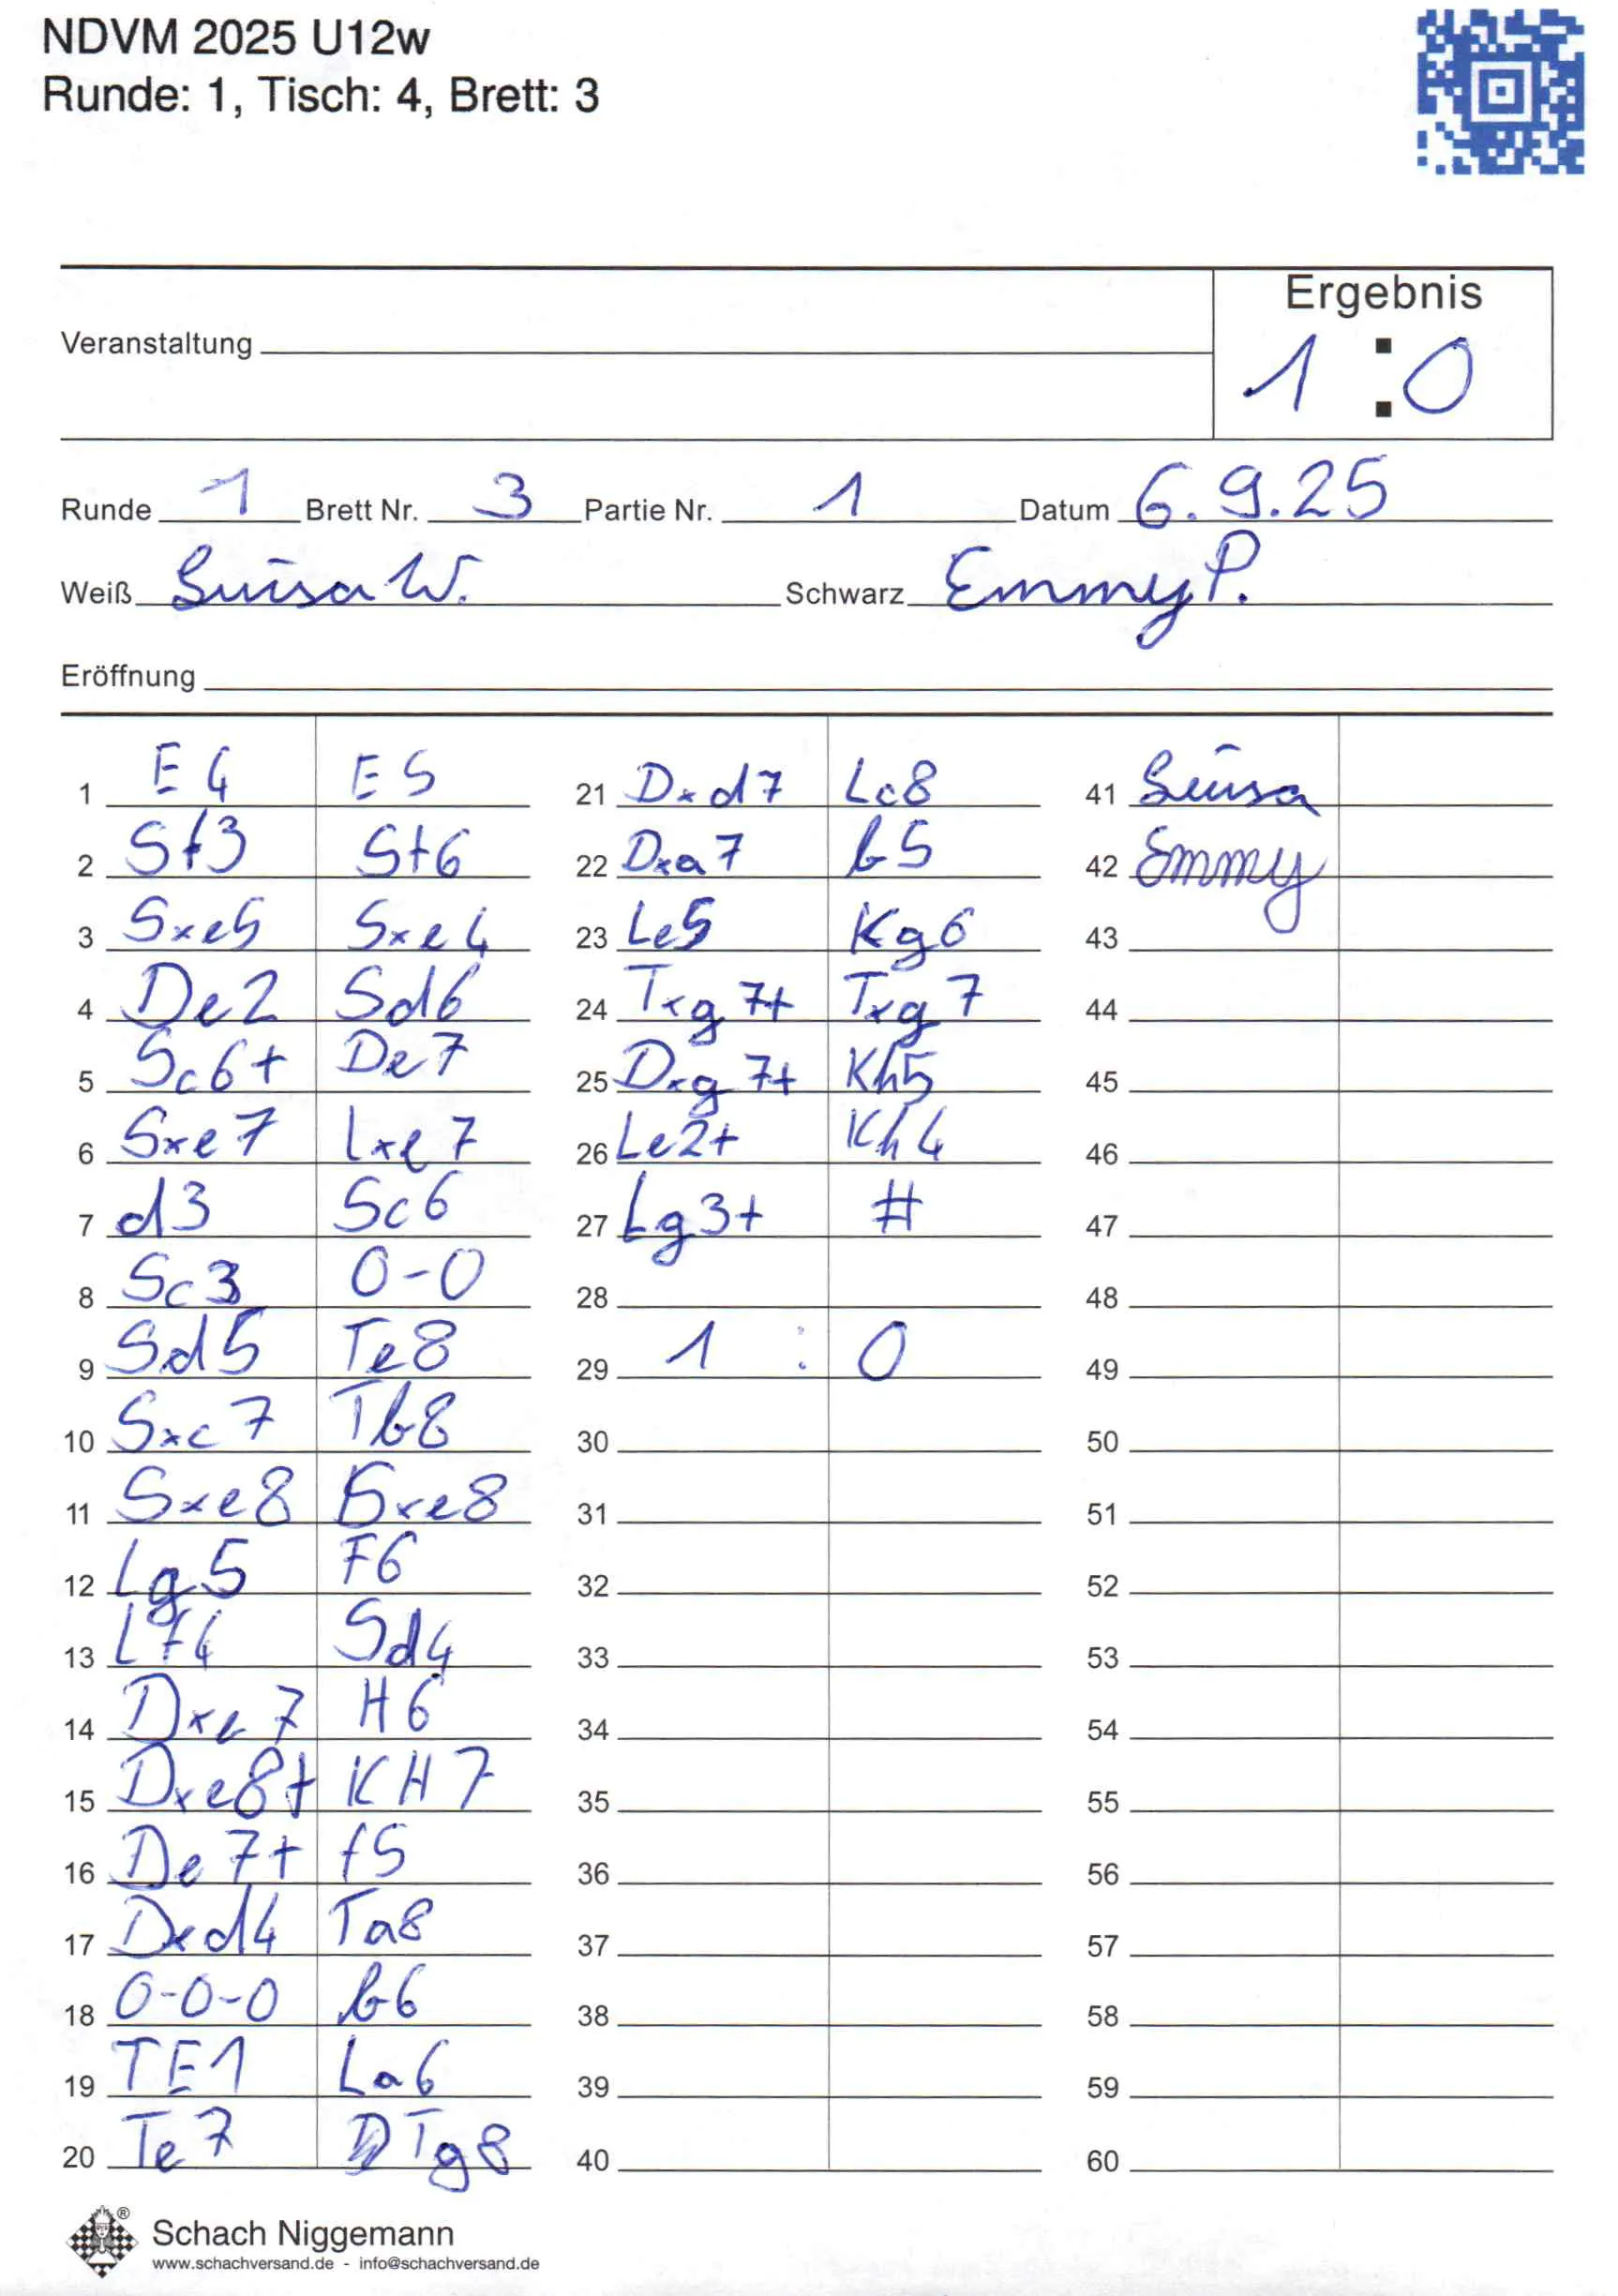 NDVM 2025 U12w
Runde: 1, Tisch: 4, Brett: 3
Ergebnis
Veranstaltung 1 : 0
Runde 1 Brett Nr. 3 Partie Nr. 1 Datum 6.9.25
Weiß Luisa W. Schwarz Emmy P.
Eröffnung
1 E4 E5 21 Dxd7 Lc8 41 Luisa
2 Sf3 Sf6 22 Dxa7 b5 42 Emmy
3 Sxe5 Sxe4 23 Le5 Kg6 43
4 De2 Sd6 24 Txg7+ Txg7 44
5 Sc6+ De7 25 Dxg7+ Kh5 45
6 Sxe7 Lxe7 26 Le2+ Kh4 46
7 d3 Sc6 27 Lg3+ # 47
8 Sc3 0-0 28 48
9 Sd5 Te8 29 1 : 0 49
10 Sxc7 Tb8 30 50
11 Sxe8 Sxe8 31 51
12 Lg5 F6 32 52
13 Lf4 Sd4 33 53
14 Dxe7 H6 34 54
15 Dxe8+ KH7 35 55
16 De7+ f5 36 56
17 Dxd4 Ta8 37 57
18 0-0-0 b6 38 58
19 TE1 La6 39 59
20 Te7 Tg8 40 60
Schach Niggemann ®
www.schachversand.de - info@schachversand.de